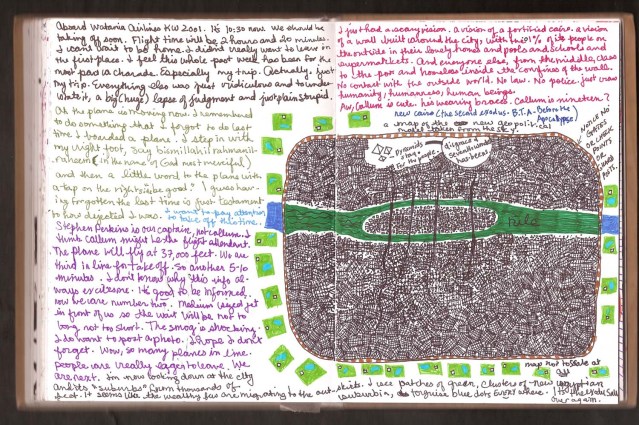 Aboard Watania Airlines KW 2001. It's 10:30 now. We should be
taking off soon. Flight time will be 2 hours and 20 minutes.
I can't wait to be home. I didn't really want to leave in
the first place. I feel this whole past week has been for the
most part a charade. Especially my trip. Actually, just
my trip. Everything else was just ridiculous and to under-
state it, a big (huge) lapse of judgment and just plain stupid.
Oh the plane is moving now. I remembered
to do something that I forgot to do last
time I boarded a plane. I step in with
my right foot, say bismillahi rahmanil-
raheem (in the name of God most merciful)
and then a little word to the plane with
a tap on the right side be good." I guess hav-
ing forgotten the last time is just testament
to how dejected I was. I want to pay attention
to take off this time.
Stephen Perkins is our captain, not Callum. I
think Callum might be the flight attendant.
The plane will fly at 37,000 feet. We are
third in line for take off. So another 5-10
minutes. I don't know why this info al-
ways excites me. It's good to be informed.
now we are number two. Medium sized jet
in front of us so the wait will be not to
long not too short. The smog is shocking.
I do want to post a photo. I hope I don't
forget. Wow, so many planes in line.
People are really eager to leave. We
are next. I'm now looking down at the city
and its "suburbs" from thousands of
feet. It seems like the wealthy few are migrating to the out-skirts. I see patches of green, clusters of new egyptian
suburbia, turquoise blue dots EVERY where. It's the Exodus all
over again.
I just had a scary vision. A vision of a fortified cairo. a vision
of a wall built around the city, with 1% of its people on
the outside in their lovely homes and pools and schools and
supermarkets. And everyone else, from the middle class
to the poor and homeless inside the confines of the wall.
No contact with the outside world. No law. No police. just craw
humanity, humanness, human beings.
Aw, Callum is cute. his wearing braces. Callum is nineteen?
new cairo (the second exodus - B.T.A. Before the
Apocalypse)
a map of the new geopolitical
model taken from the sky.
pyramids
stay
for the people
disgrace a
seventh wonder
Notice NO
GATES
OR
ENTRY
POINTS
nile
map not to scale at
all